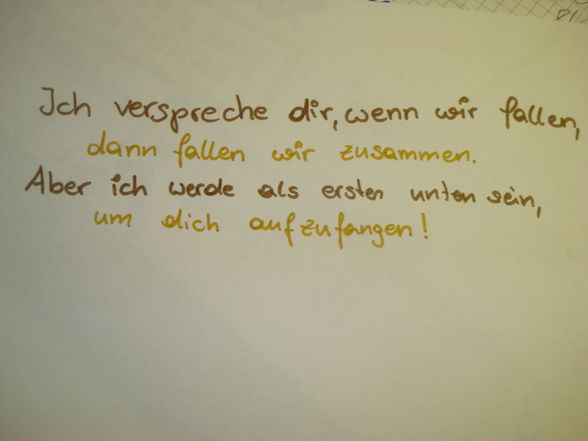 Ich verspreche dir, wenn wir fallen,
dann fallen wir zusammen.
Aber ich werde als ersten unten sein,
um dich aufzufangen!